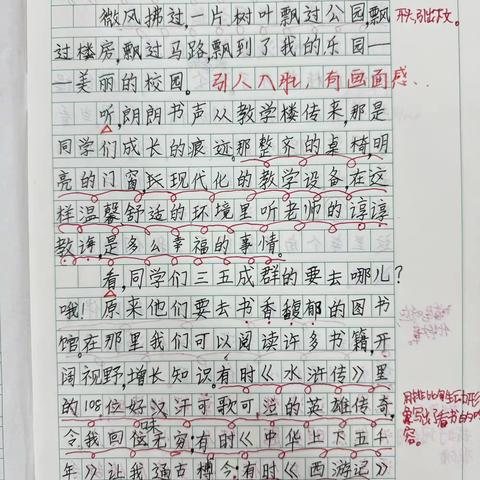 微风拂过,一片树叶飘过公园,飘
过楼房,飘过马路,飘到了我的乐园—
—美丽的校园。引人入胜,有画面感..
听,朗朗书声从教学楼传来,那是
同学们成长的痕迹。那整齐的桌椅,明
亮的门窗,及现代化的教学设备,在这
样温馨舒适的环境里听老师的谆谆
教诲,是多么幸福的事情。
看,同学们三五成群的要去哪儿?
哦!原来他们要去书香馥郁的图书
馆。在那里我们可以阅读许多书籍,开
阔视野,增长知识。有时《水浒传》里
的108位好汉可歌可泣的英雄传奇,
令我回味无穷;有时《中华上下五千
年》让我通古博今;有时《西游记》
引出下文。